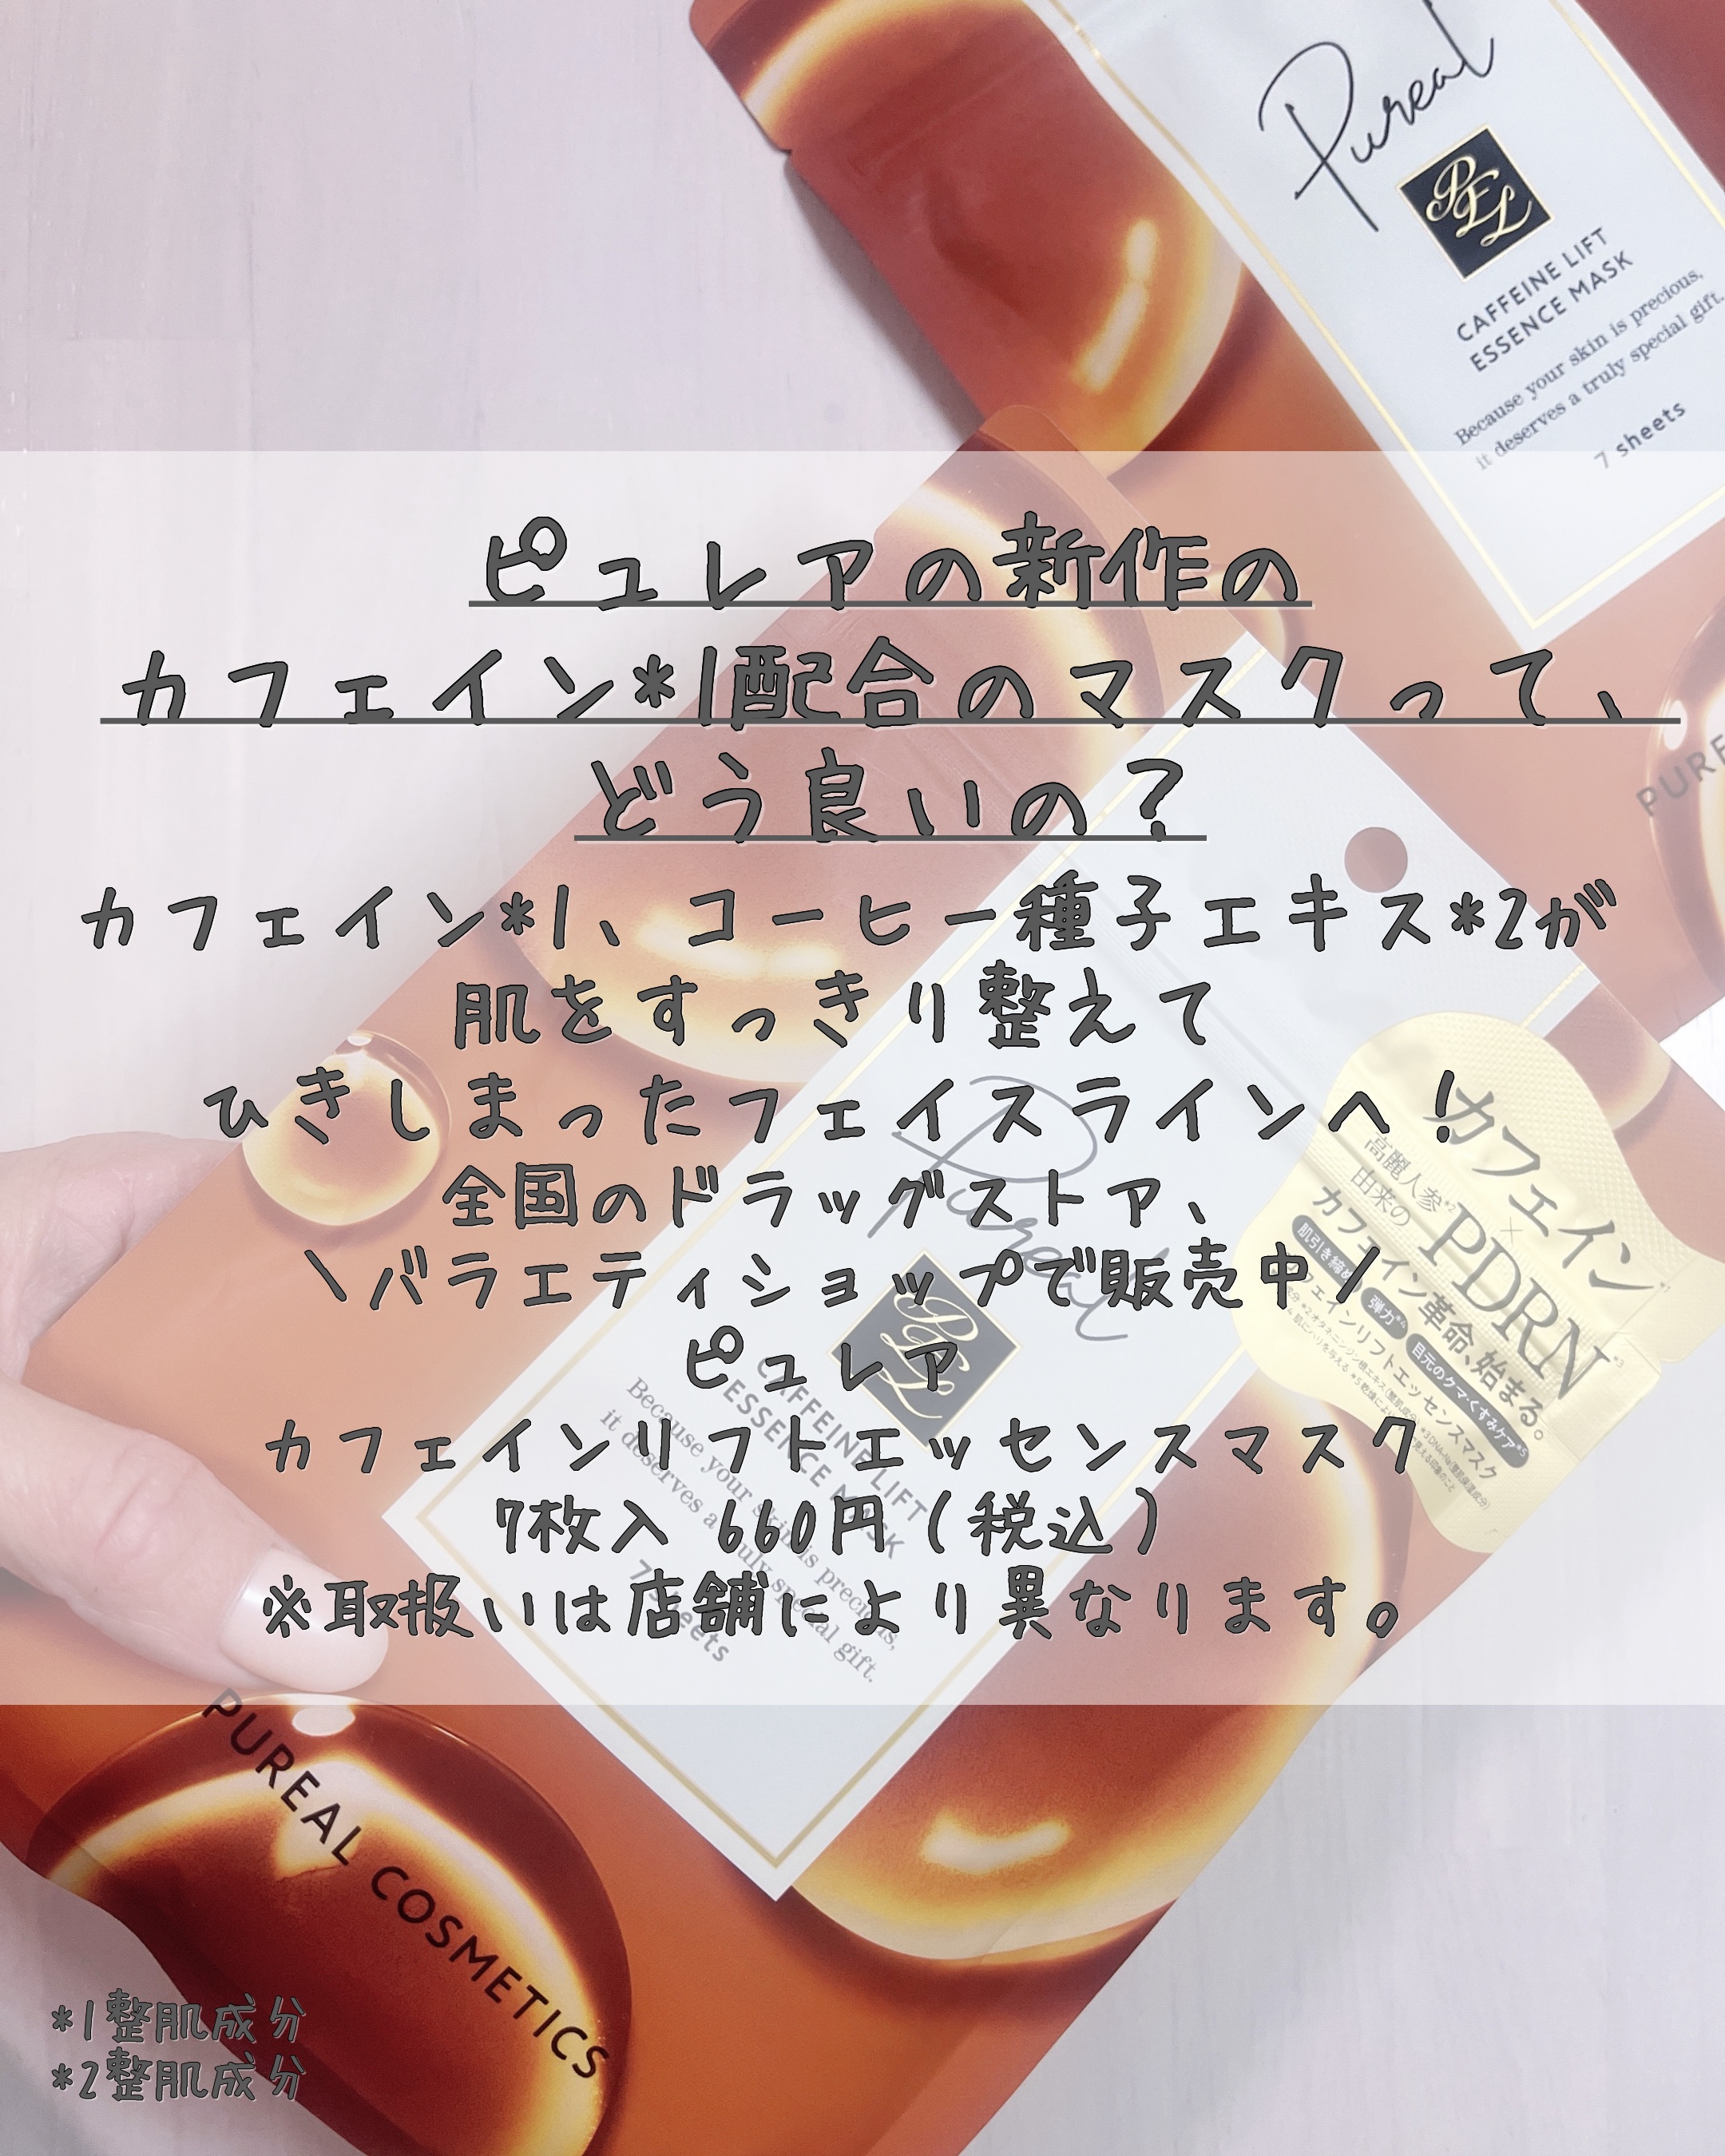 Pureal
PEL
CAFFEINE LIFT
ESSENCE MASK
Because your skin is precious,
it deserves a truly special gift.
7 sheets
ピュレアの新作の
カフェイン*1配合のマスクって、
どう良いの？
カフェイン*1、コーヒー種子エキス*2が
肌をすっきり整えて
ひきしまったフェイスラインへ！
全国のドラッグストア、
\バラエティショップで販売中/
ピュレア
カフェインリフトエッセンスマスク
7枚入 660円（税込）
※取扱いは店舗により異なります。
PURE
カフェイン*1
×
高麗人参*2
由来の
PDRN*3
カフェイン革命、始まる。
肌引き締め
弾力*4
目元のクマ・くすみケア*5
カフェインリフトエッセンスマスク
Pureal
PEL
CAFFEINE LIFT
ESSENCE MASK
Because your skin is precious,
it deserves a truly special gift.
7 sheets
PUREAL COSMETICS
*1整肌成分
*2整肌成分